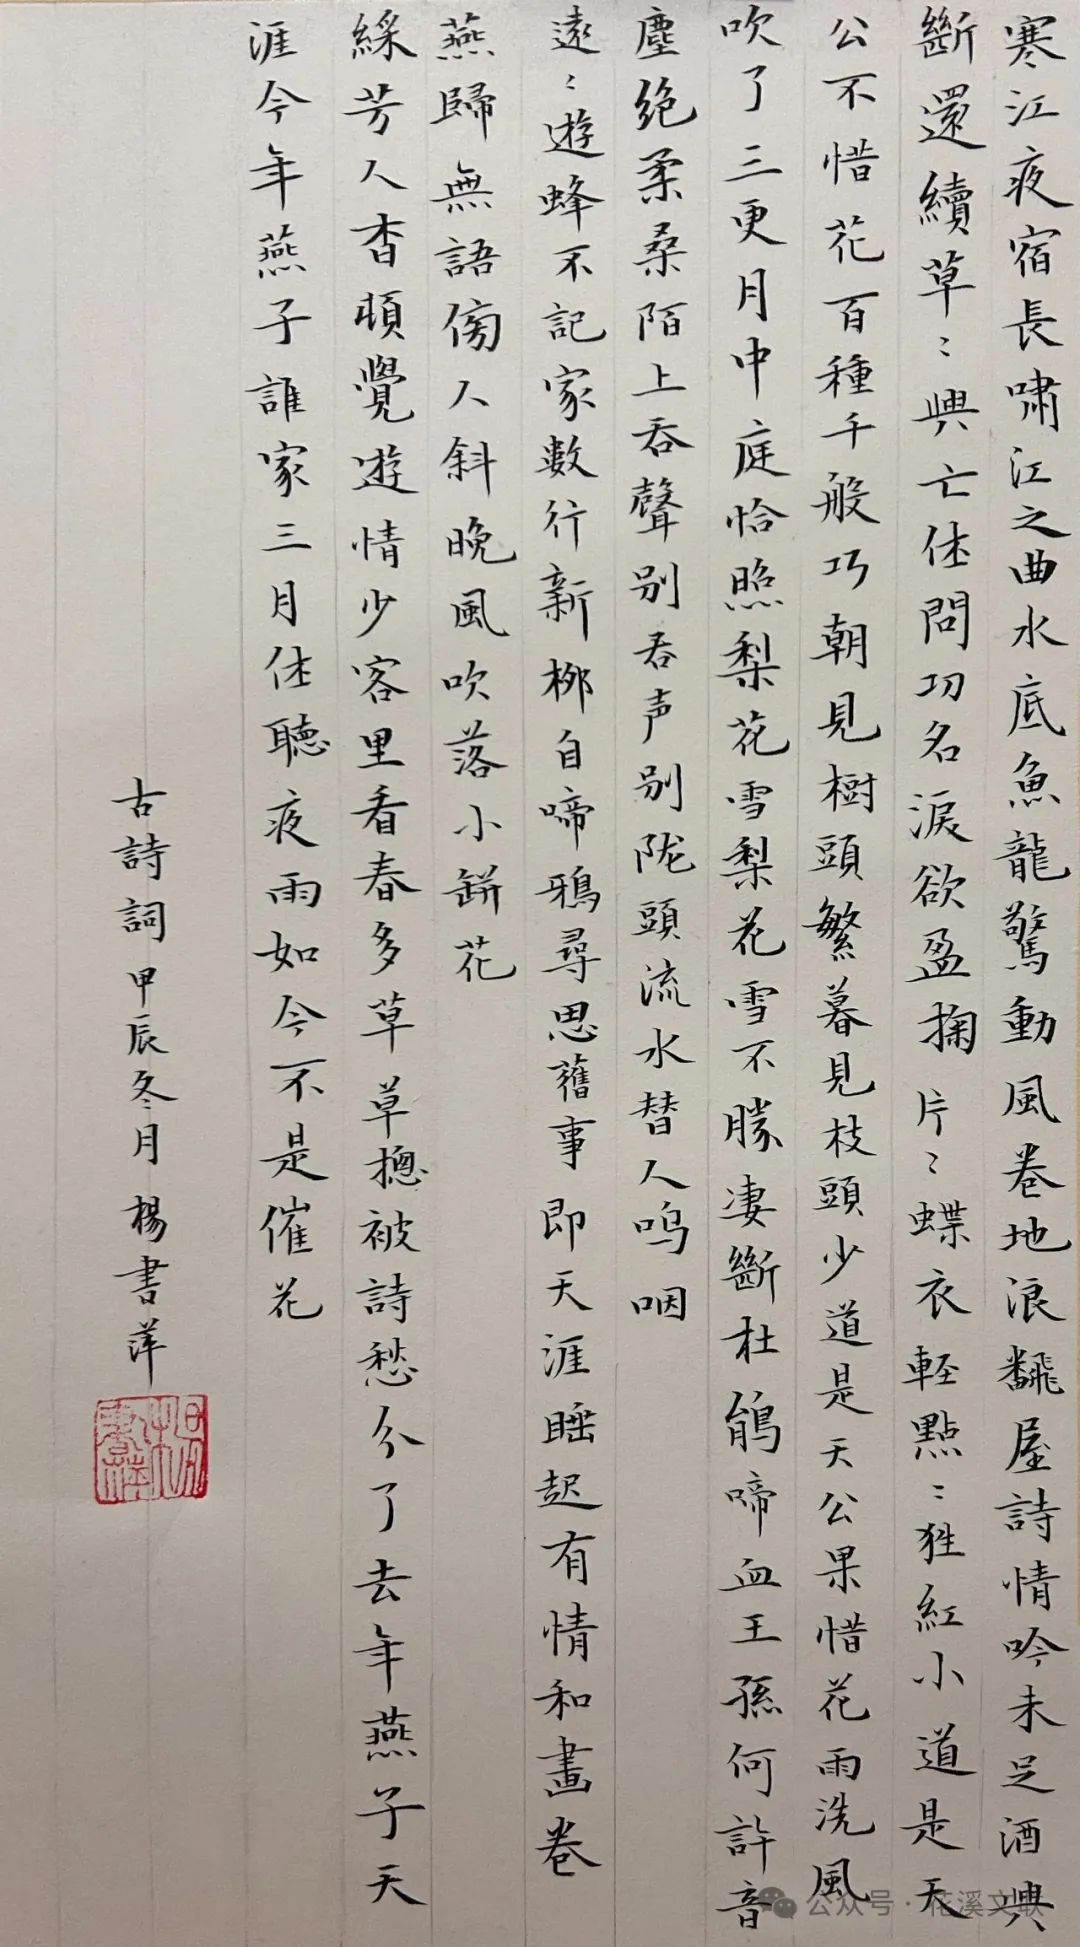 寒江夜宿長嘯江之曲水底魚龍驚動風卷地浪飜屋詩情吟未足酒興
斷還續草〻興亡休問功名淚欲盈掬片〻蝶衣輕點〻猩紅小道是天
公不惜花百種千般巧朝見樹頭繁暮見枝頭少道是天公果惜花雨洗風
吹了三更月中庭恰照梨花雪梨花雪不勝淒斷杜鵑啼血王孫何許音
塵絕柔桑陌上吞聲别吞声别陇頭流水替人嗚咽
遠〻遊蜂不記家數行新柳自啼鴉尋思舊事即天涯睡起有情和畫卷
燕歸無語傍人斜晚風吹落小缾花
綵芳人杳頓覺遊情少客里看春多草草摠被詩愁分了去年燕子天
涯今年燕子誰家三月休聽夜雨如今不是催花
古詩詞甲辰冬月楊書萍
公众号·花溪文联